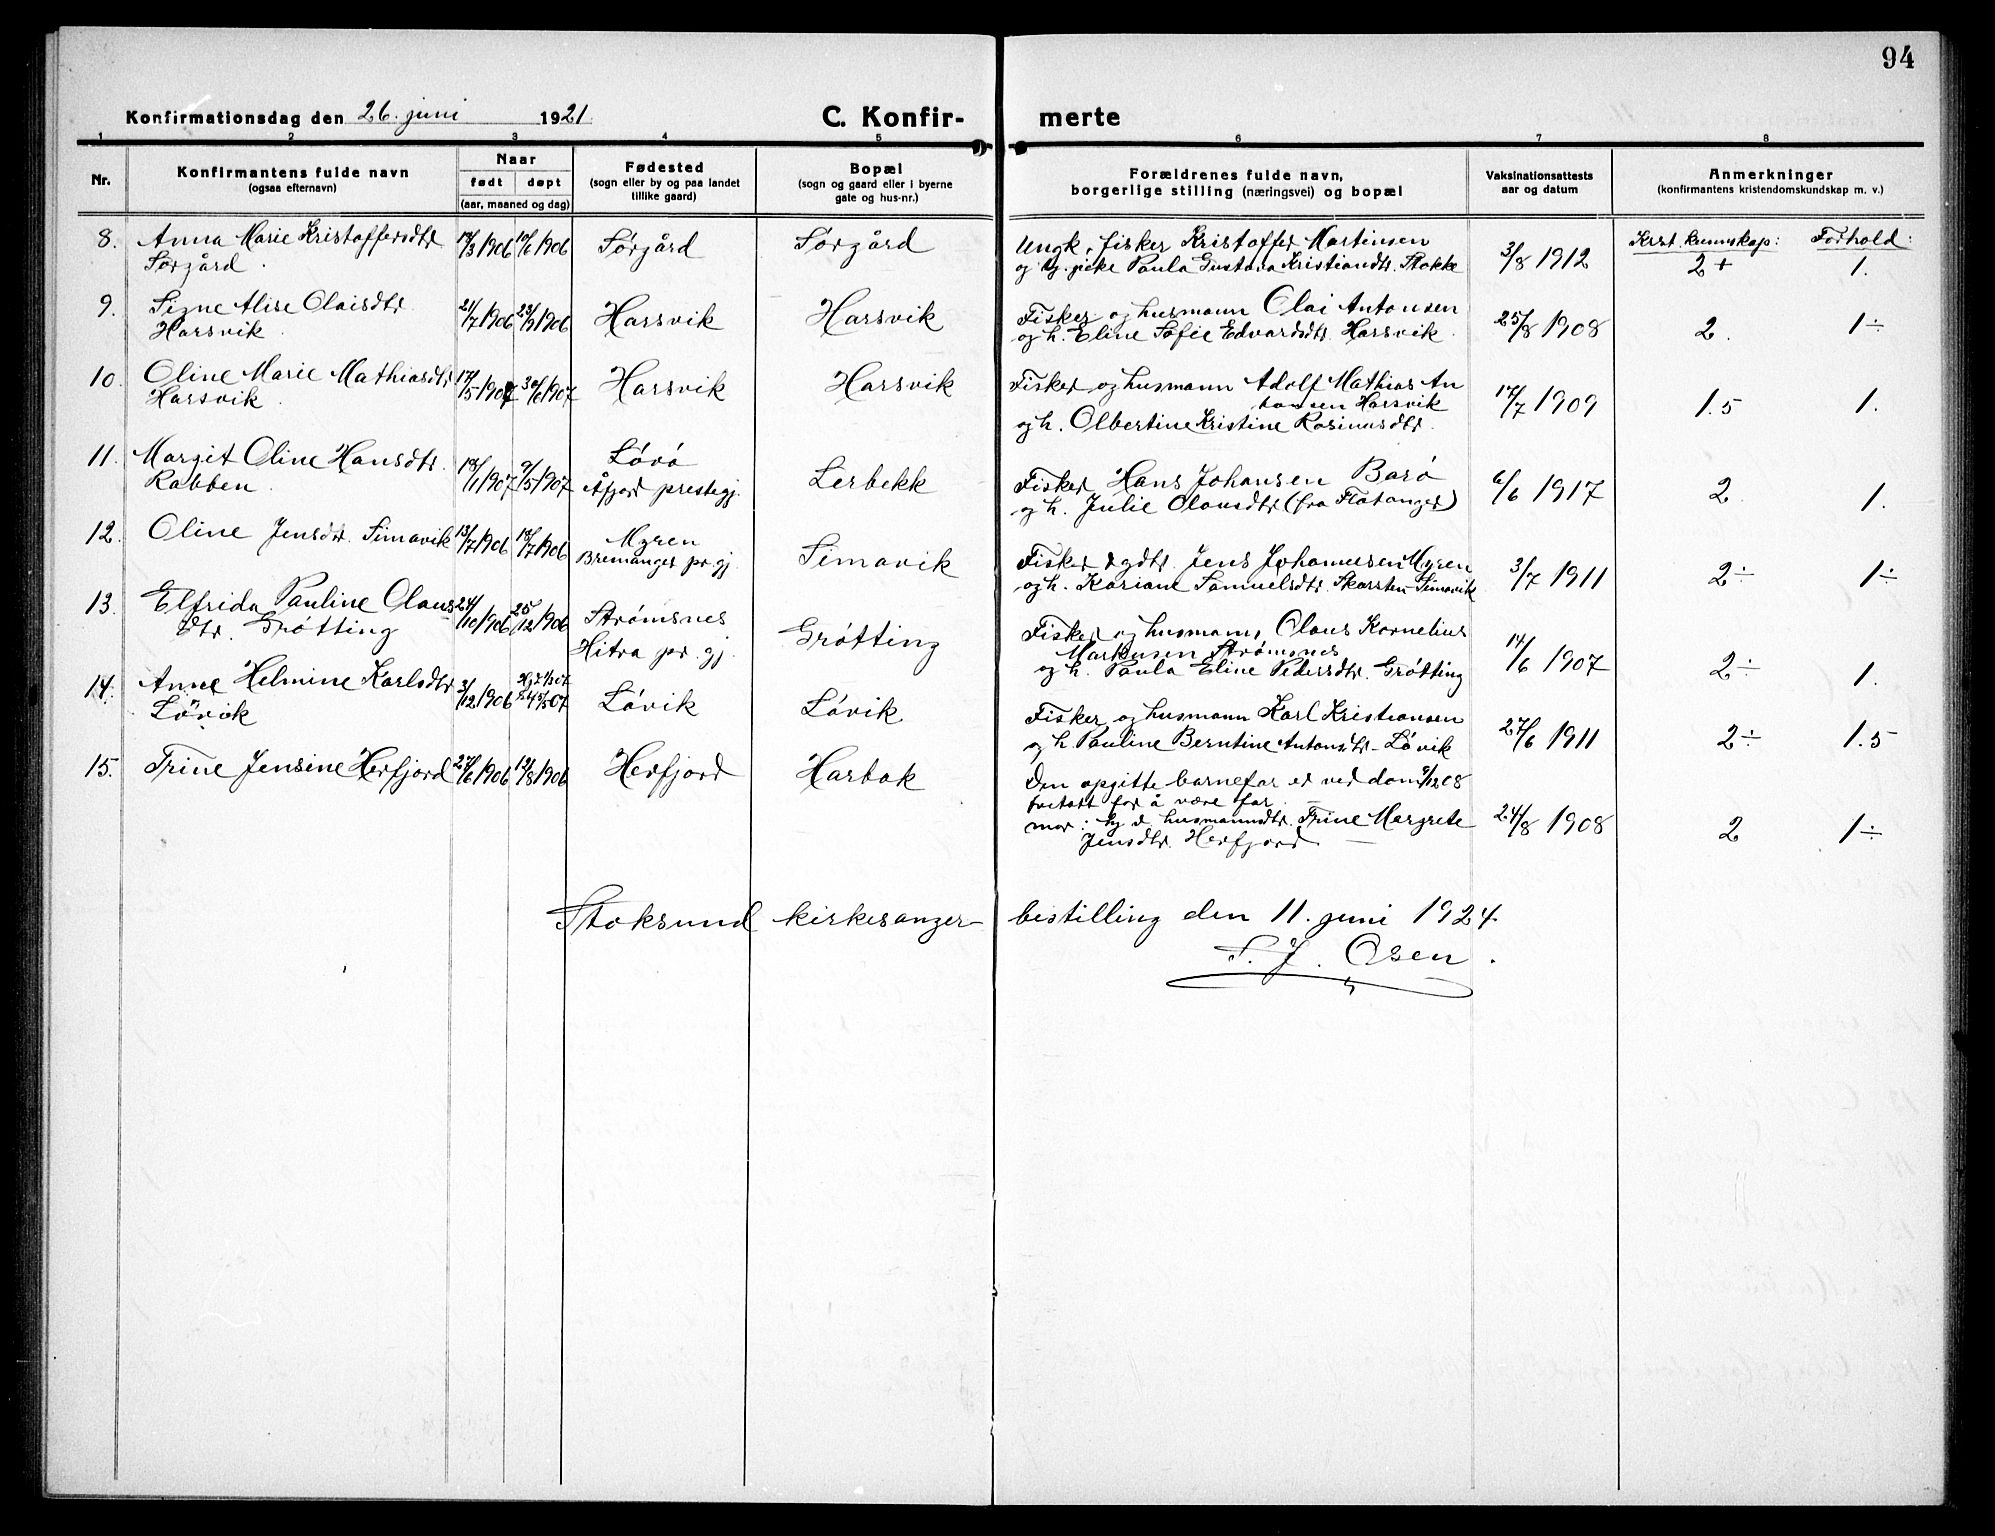 94
Konfirmationsdag den 26. juni 1921.
C. Konfir-
merte
1 2 3 4 5 6 7 8
Nr.
Konfirmantens fulde navn
(ogsaa efternavn)
Naar
født døpt
(aar, maaned og dag)
Fødested
(sogn eller by og paa landet
tillike gaard)
Bopæl
(sogn og gaard eller i byerne
gate og hus-nr.)
Forældrenes fulde navn,
borgerlige stilling (næringsvei) og bopæl
Vaksinationsattests
aar og datum
Anmerkninger
(konfirmantens kristendomskundskap m. v.)
Krst. kunnskap: Forhold:
8. Anna Marie Kristoffersdtr
Sørgård.
Sørgård Sørgård
Ungk. fisker Kristoffer Martinsen
og pike Paula Gustava Kristiansdtr. Stokke
3/8 1912 2+ 1.
9. Signe Alise Olaisdtr
Harsvik.
21/7 1906 23/9 1906 Harsvik Harsvik
Fisker og husmann Olai Antonsen
og h. Eline Sofie Edvardsdtr. Harsvik.
25/8 1908 2. 1÷
10. Oline Marie Mathiasdtr
Harsvik.
17/5 1907 30/6 1907 Harsvik Harsvik
Fisker og husmann Adolf Mathias An
tonsen Harsvik
og h. Olbertine Kristine Rasinusdtr.
17/7 1909 1.5 1.
11. Margit Oline Hansdtr.
Rabben.
18/1 1907 9/5 1907 Lóvó
Åfjord prestegj.
Lerbekk
Fisker Hans Johansen Baró
og h. Julie Olausdtr (fra Flatanger)
6/6 1917 2. 1.
12. Oline Jensdtr. Simavik
13/7 1906 18/7 1906 Myren
Bremanger pr.gj.
Simavik
Fisker Jens Johannesen Myren
og h. Kariane Samuelsdtr. Skarsten-Simavik
3/7 1911 2÷ 1÷
13. Elfrida Pauline Olaus
dtr. Grótting
24/10 1906 25/12 1906 Strømsnes
Hitra pr.gj.
Grótting
Fisker og husmann Olaus Kornelius
Markusen Strømsnes
og h. Paula Eline Pedersdtr. Grótting
14/6 1907 2÷ 1.
14. Anne Helmine Karlsdtr
Lóvik
3/12 1906
Lóvik Lóvik
Fisker og husmann Karl Kristiansen
og h. Pauline Berntine Antonsdtr - Lóvik
27/6 1911 2÷ 1.5
15. Trine Jensine Herfjord
27/6 1906 19/8 1906 Herfjord Harbak
Den opgitte barnefar er ved dom 9/12 08
fritatt for å være far.
mor: husmannsdtr. Trine Margrete
Jensdtr. Herfjord.
24/8 1908 2 1÷
Stoksund kirkesanger-bestilling den 11. juni 1924.
F. J. Osen.